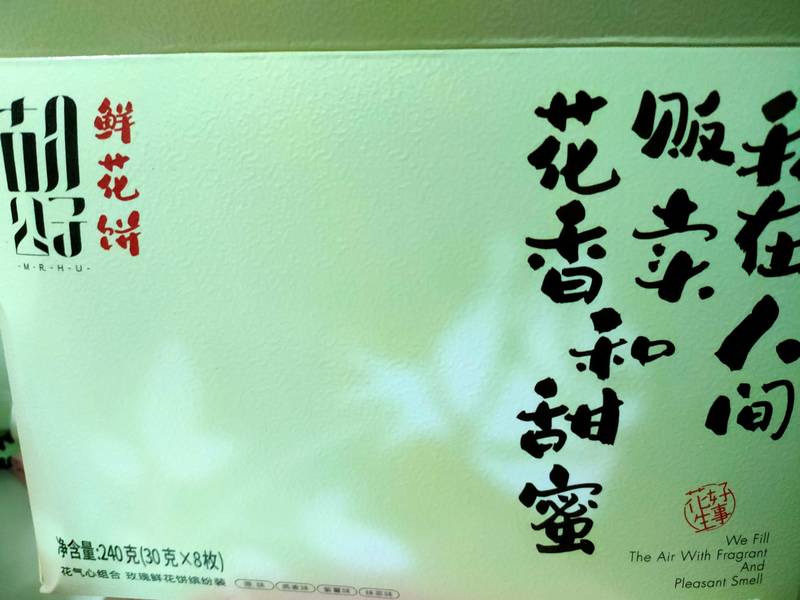 胡公子
-M-R-H-U-
鲜花饼
我在人间
贩卖
花香和甜蜜
花好
生事
We Fill
The Air With Fragrant
And
Pleasant Smell
净含量:240克(30克×8枚)
花气心组合 玫瑰鲜花饼缤纷装 原味 燕麦味 紫薯味 抹茶味